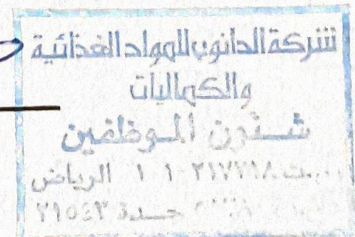 شركة الدانوب للمواد الغذائية
والكماليات
شئون الموظفين
الرياض
جدة